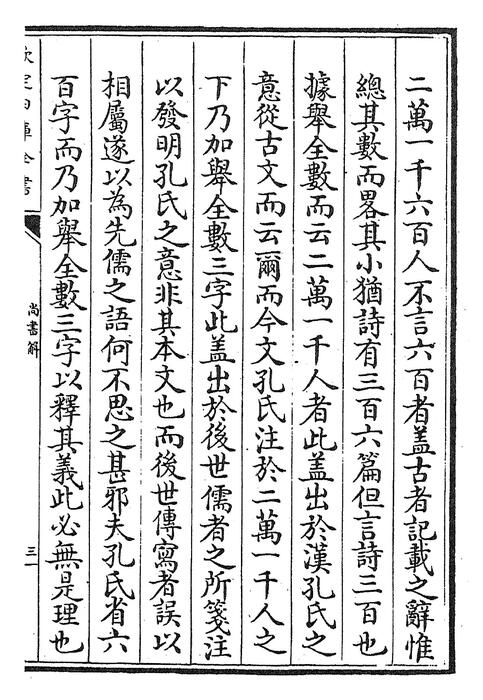 二萬一千六百人不言六百者盖古者記載之辭惟
總其數而畧其小猶詩有三百六篇但言詩三百也
據舉全數而云二萬一千人者此盖出於漢孔氏之
意從古文而云爾而今文孔氏注於二萬一千人之
下乃加舉全數三字此盖出於後世儒者之所箋注
以發明孔氏之意非其本文也而後世傳寫者誤以
相屬遂以為先儒之語何不思之甚邪夫孔氏省六
百字而乃加舉全數三字以釋其義此必無是理也
欽定四庫全書
尚書解
三